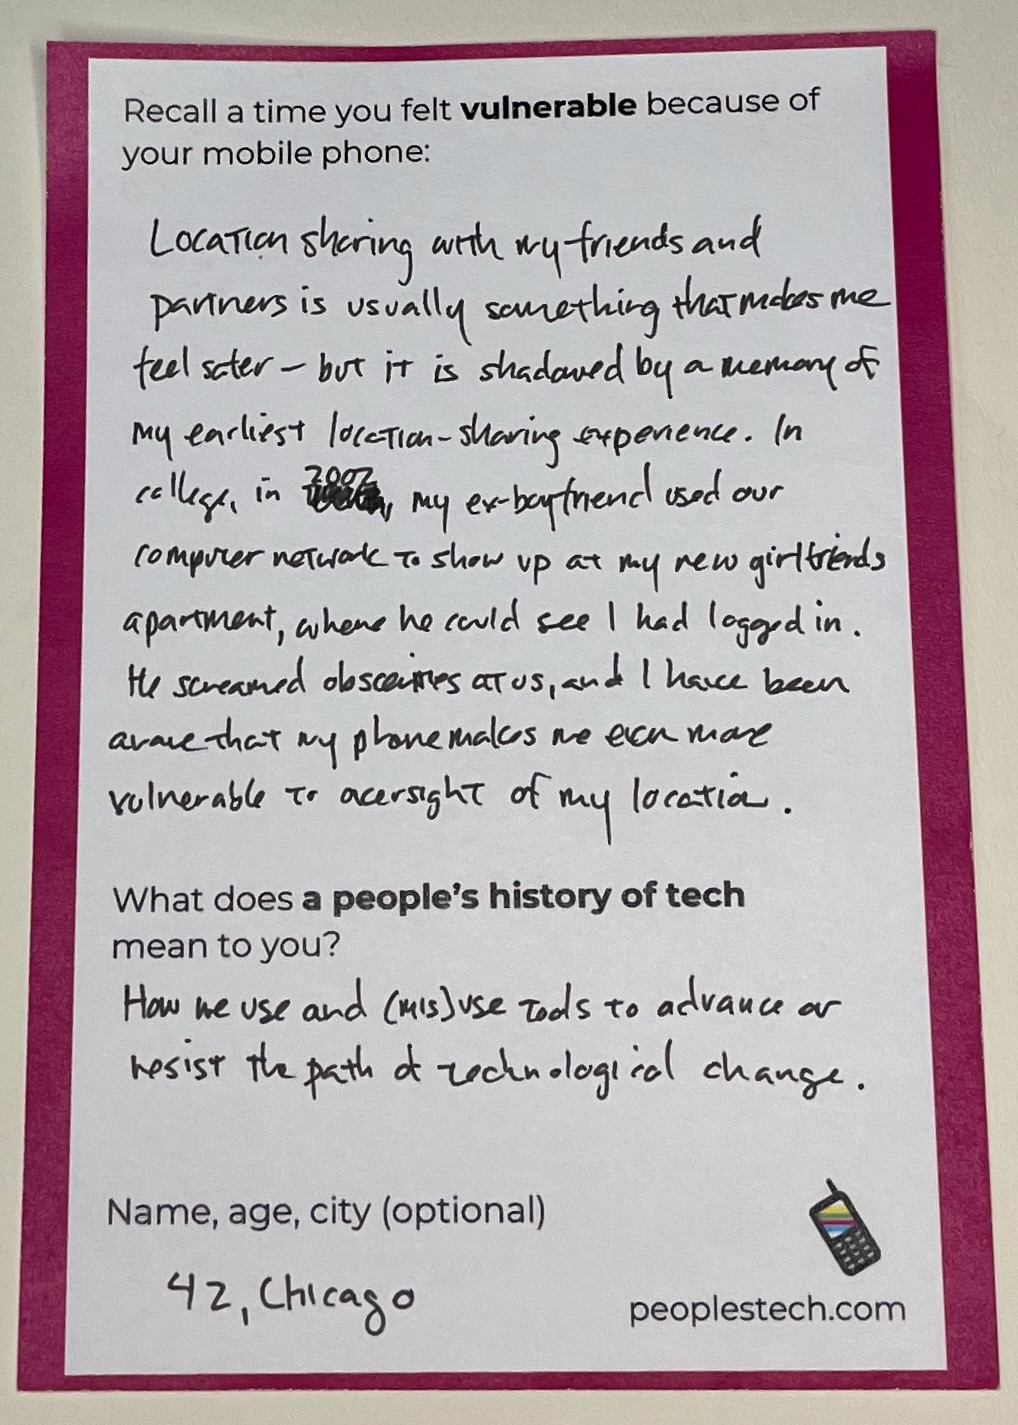 Recall a time you felt vulnerable because of
your mobile phone:
Location sharing with my friends and
partners is usually something that makes me
feel safer – but it is shadowed by a memory of
my earliest location-sharing experience. In
college, in 2002, my ex-boyfriend used our
computer network to show up at my new girlfriends
apartment, where he could see I had logged in.
He screamed obscenities at us, and I have been
aware that my phone makes me even more
vulnerable to oversight of my location.
What does a people's history of tech
mean to you?
How we use and (mis)use tools to advance or
resist the path of technological change.
Name, age, city (optional)
42, Chicago
peoplestech.com